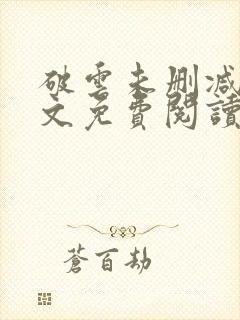 破雲未刪減
文免費閱讀
蒼百劫